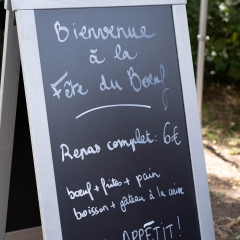 Bienvenue
à la
Fête du Bœuf
Repas complet : 6€
bœuf + frites + pain
boisson + gâteau à la
APPÉTIT !